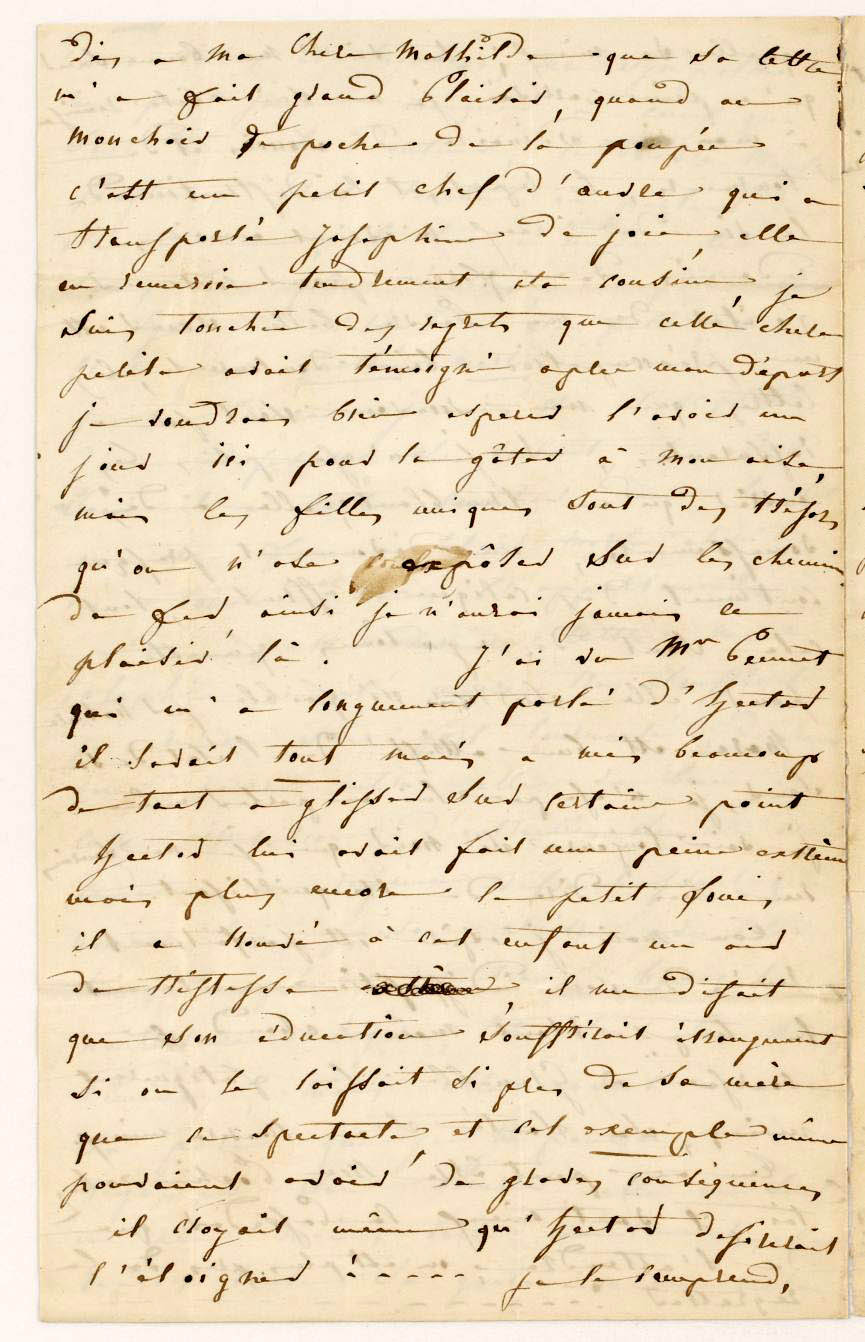 Dis a ma Chere Mathilde que sa lettre
m'a fait grand Plaisir, quand au
mouchoir de poche de la poupée
c'est un petit chef d'œuvre qui a
transporté Josephine de joie, elle
en remercie tendrement sa cousine, je
suis touchée des regrets que cette chere
petite avait témoigné apres mon départ
je voudrais bien esperer l'avoir un
jour ici pour la gâter à mon aise,
mais les filles uniques sont des trésors
qu'on n'ose expôser sur les chemins
de fer, ainsi je n'aurai jamais ce
plaisir là. J'ai vu Mr Pernet
qui m'a longuement parlé d'Hector
il savait tout mais a mis beaucoup
de tact a glisser sur certains point
Hector lui avait fait une peine extrême
mais plus encore le petit Louis,
il a trouvé à cet enfant un air
de tristesse, il me disait
que son éducation souffrirait étrangement
si on le laissait si pres de sa mère
que ce spectacle, et cet exemple même
pouvaient avoir de graves conséquences
il croyait même qu'Hector desirerait
l'éloigner ! ----- je le comprend,